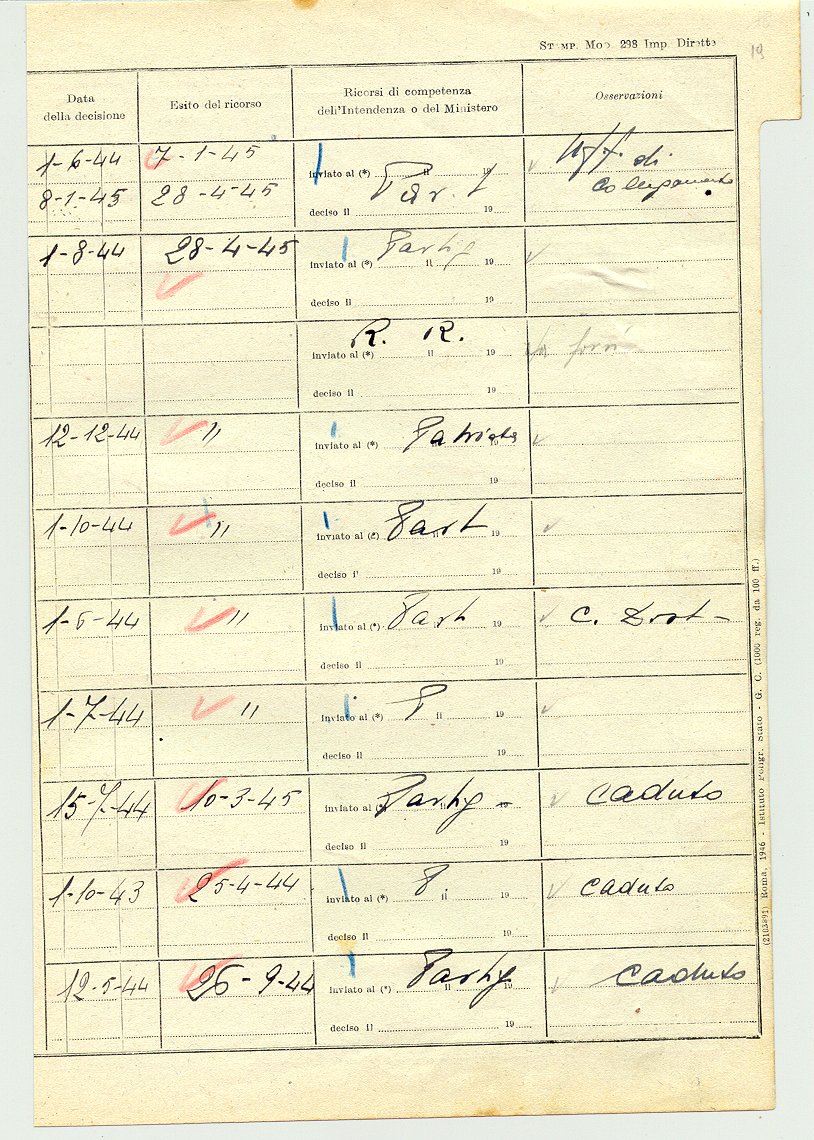 STAMP. MOD. 298 Imp. Dirette
19
Data della decisione
Esito del ricorso
Ricorsi di competenza dell'Intendenza o del Ministero
Osservazioni
1-6-44 7-1-45 inviato al (*) il 19 Uff. di
8-1-45 28-4-45 Part collegamento
deciso il 19
1-8-44 28-4-45 Partig
inviato al (*) il 19
deciso il 19
R. R.
inviato al (*) il 19
deciso il 19
12-12-44 " inviato al (*) Patriota 19
deciso il 19
1-10-44 " inviato al (2) Part il 19
deciso i' 19
1-6-44 " inviato al (*) Part 19 C. Dist-
deciso il 19
1-7-44 " inviato al (*) P il 19
deciso il 19
15-7-44 10-3-45 inviato al (*) Partig - il 19 caduto
deciso il 19
1-10-43 25-4-44 inviato al (*) P. il 19 caduto
deciso il 19
12-5-44 26-9-44 inviato al (*) Partig il 19 caduto
deciso il 19
(2103891) Roma, 1946 - Istituto Poligr. Stato - G. C. (1000 reg. da 100 ff.)